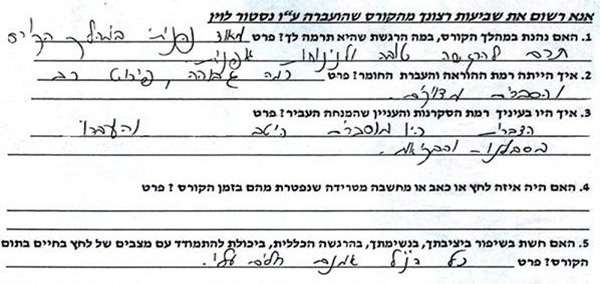 אנא רשום את שביעות רצונך מהקורס שהועברה ע"י נסטור לוין
1. האם נהנת במהלך הקורס, במה הרגשת שהיא תרמה לך? פרט מאוד נהניתי במהלך הקורס
תרם להרגשה טובה ולנינוחות
2. איך הייתה רמת ההוראה והעברת החומר? פרט רמה גבוהה, פירוט רב
והסברים מדויקים.
3. איך היו בעיניך רמת הסקרנות והעניין שהמנחה העביר? פרט
הדברים היו מוסברים היטב והועברו
בסבלנות
4. האם היה איזה לחץ או כאב או מחשבה מטרידה שנפטרת מהם בזמן הקורס? פרט
5. האם חשת בשיפור ביציבתך, בנשימתך, בהרגשה הכללית, ביכולת להתמודד עם מצבים של לחץ בחיים בתום
הקורס? פרט כל הנ"ל אמנם חלים עליי.